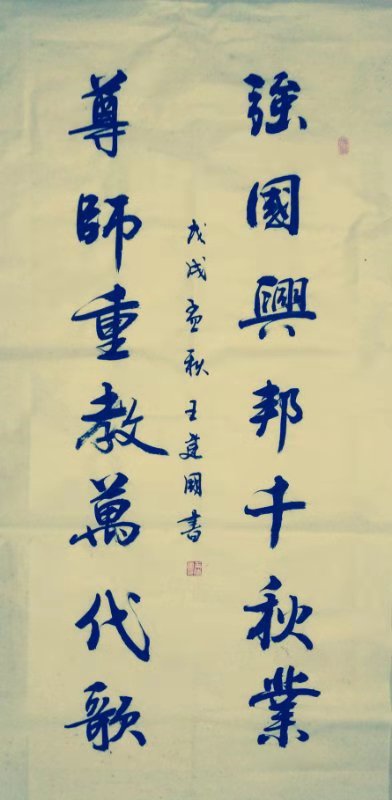 強國興邦千秋業
尊師重教萬代歌
戊戌孟秋王建國書